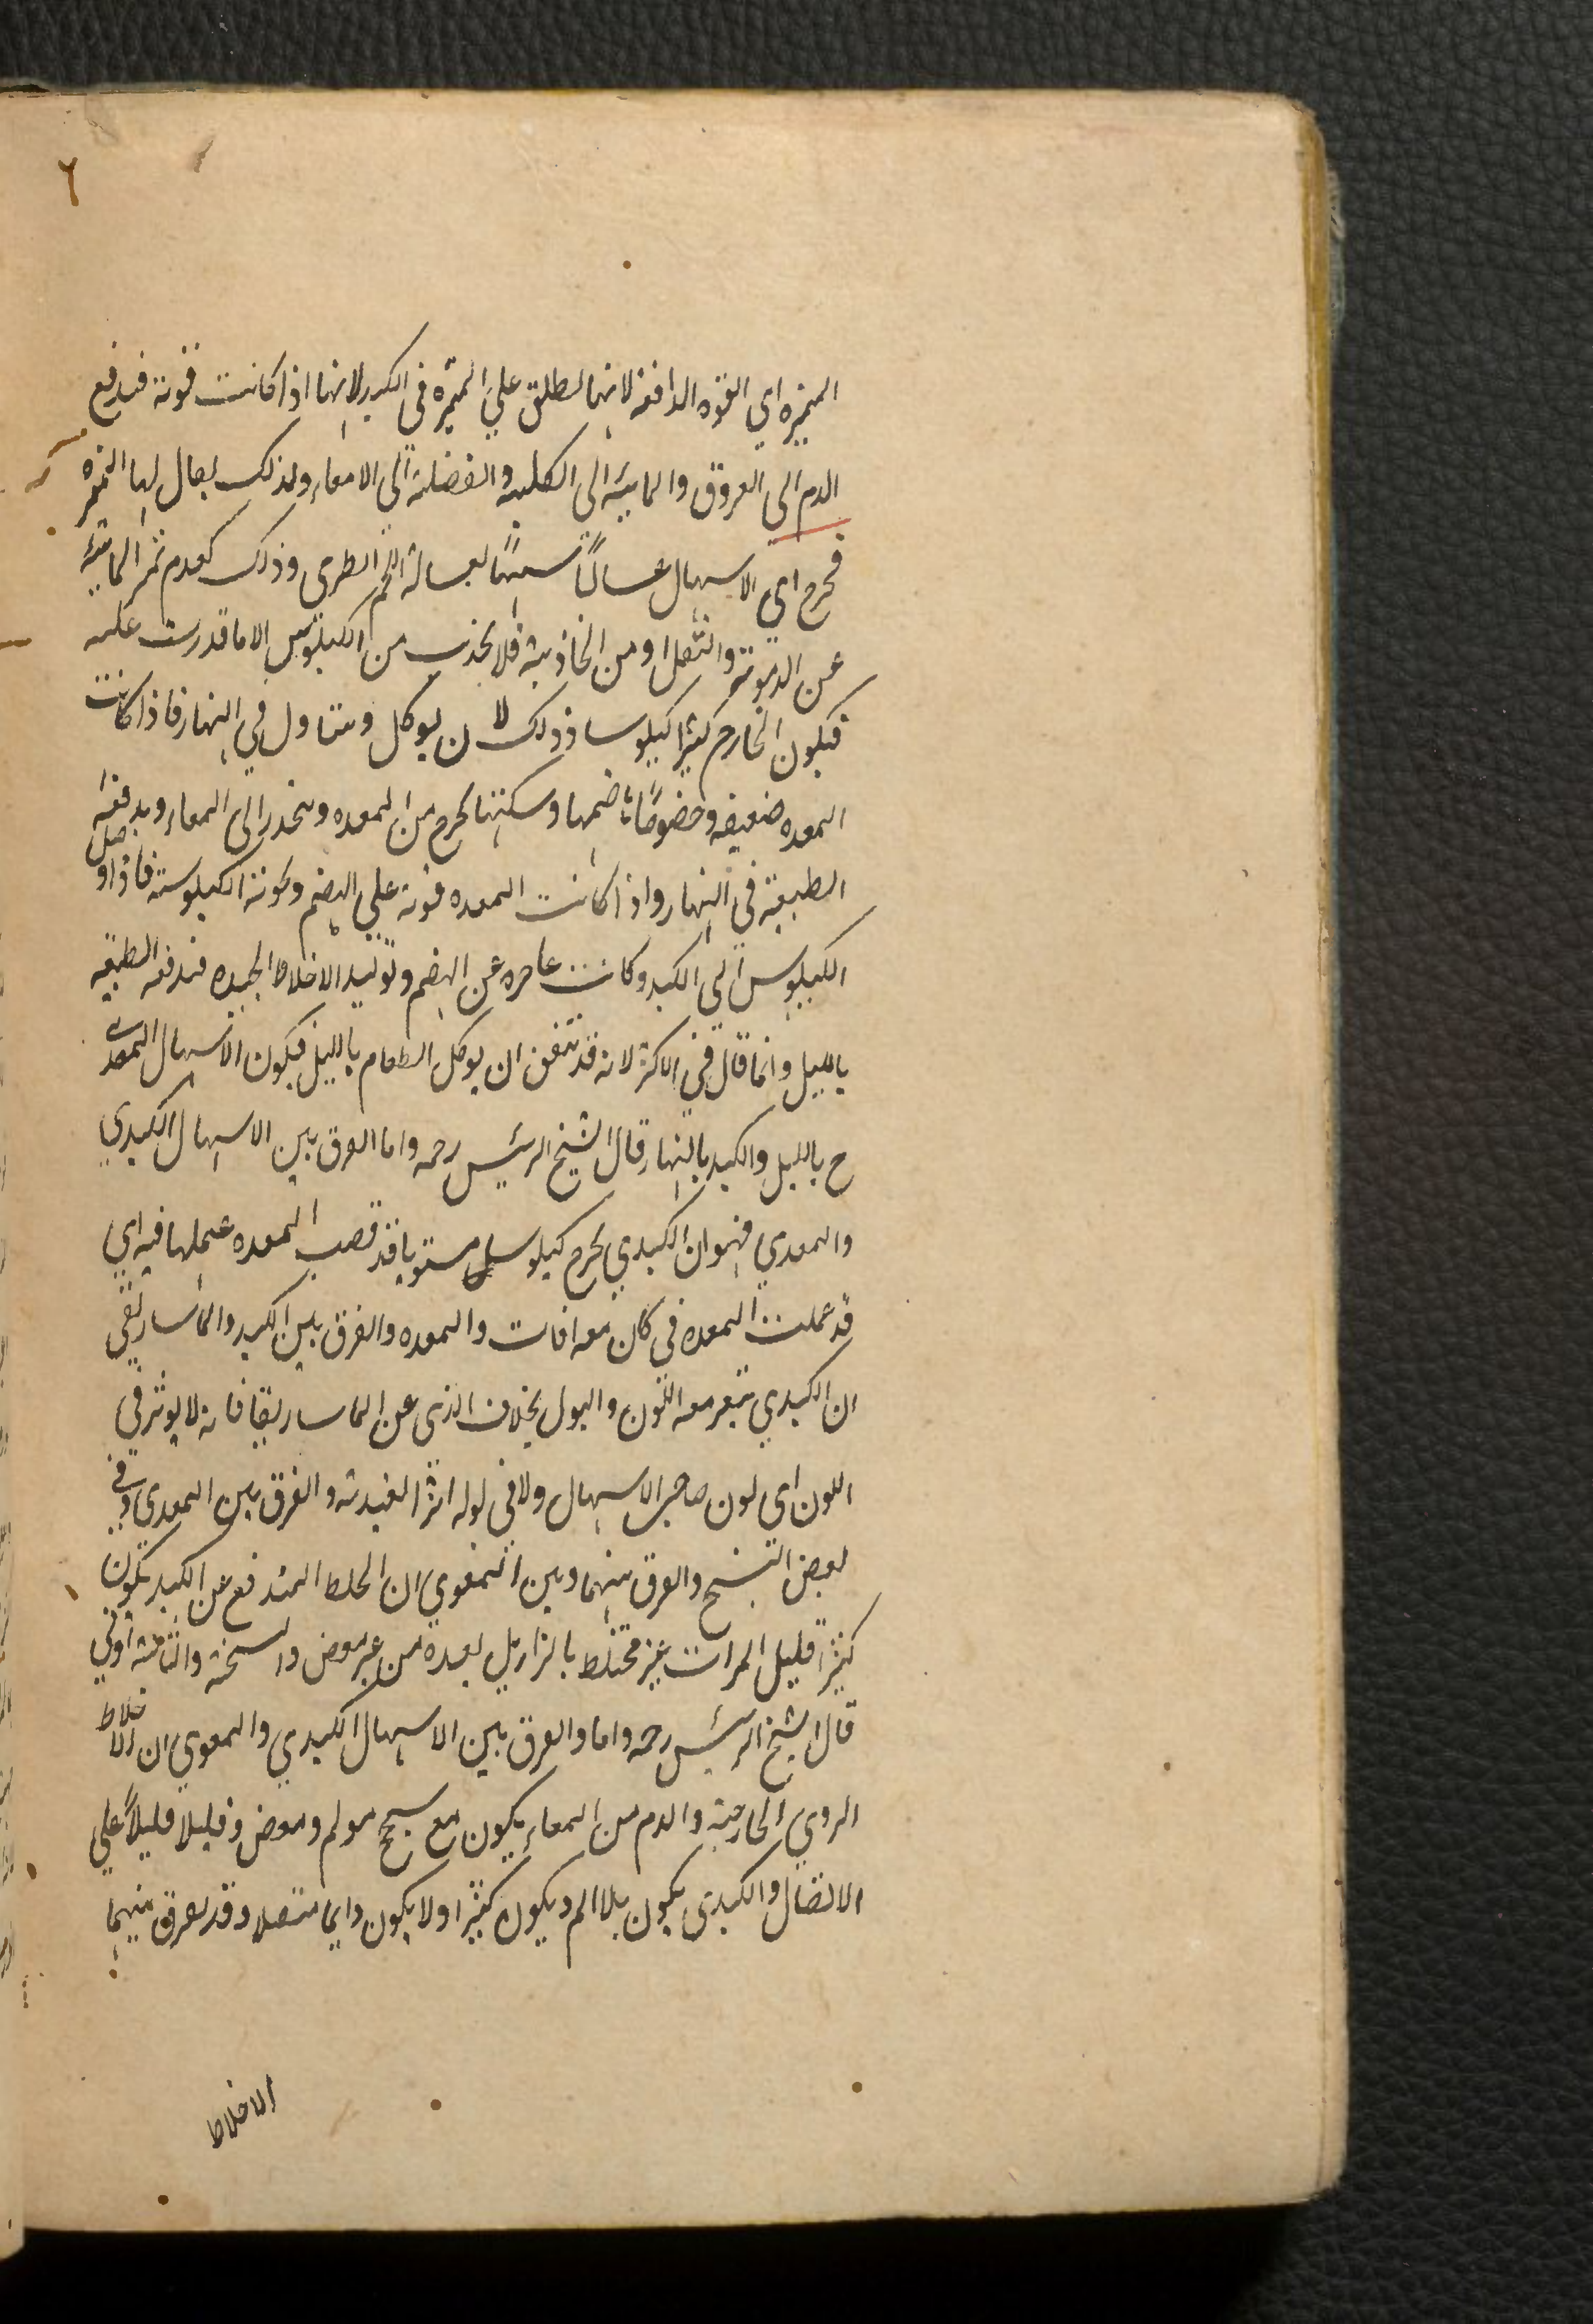 ٦
المميزه اي القوه الدافعه لانها لطلق علي المميزه في الكبد لانها اذا كانت قوية فيدفع
الدم الى العروق والمائية الى الكلية والفضلية الى الامعاء ولذلك يقال لها المميزه
فخرج اي الاسهال غسالياً شبيهاً بغسالة اللحم الطرى وذلك لعدم تميز المائية
عن الدموية والثفل او من الجاذبية فلا يجذب من الكيلوس الا ما قدرت عليه
فيكون الخارج كثيرا كيلوسا وذلك لان يوكل ويتناول في النهار فاذا كانت
المعده ضعيفه وخصوصًا هاضمها وسكنتها يخرج من المعده وينحدر الى المعاء ويدفعه
الطبيعة في النهار واذا كانت المعده قوية علي الهضم وكونه الكيلوسية فاذا وصل
الكيلوس الى الكبد وكانت عاجزه عن الهضم وتوليد الاخلاط الجيده فيدفعه الطبيعة
بالليل وانما قال في الاكثر لانه قد يتفق ان يوكل الطعام بالليل فيكون الاسهال المعدي
ح بالليل والكبد بالنهار قال الشيخ الرئيس رحمه واما الفرق بين الاسهال الكبدي
والمعدي فهو ان الكبدي يخرج كيلوس مستويا قد قضت المعده عملها فيه اي
قد عملت المعده في كان معه افات والمعده والفرق بين الكبد والماساريقي
ان الكبدي يتغير معه اللون والبول بخلاف الذي عن الماساريقا فانه لا يوثر في
اللون اي لون صاحب الاسهال ولا في بوله اثرا لعيدته والفرق بين المعدي وفي
بعض النسخ والفرق بينهما وبين المعوي ان الخلط المندفع عن الكبد يكون
كثيرًا قليل المرات غير مختلط بالبراز بل بعده من غير مغص و
قال الشيخ الرئيس رحمه واما والفرق بين الاسهال الكبدي والمعوي ان الاخلاط
الردي الخارجية والدم من المعاء يكون مع سحج مولم ومغص وقليلا قليلاً علي
الاتصال والكبدى يكون بلا الم ويكون كثيرا ولا يكون دايما متصلا وقد يفرق بينهما
الاخلاط